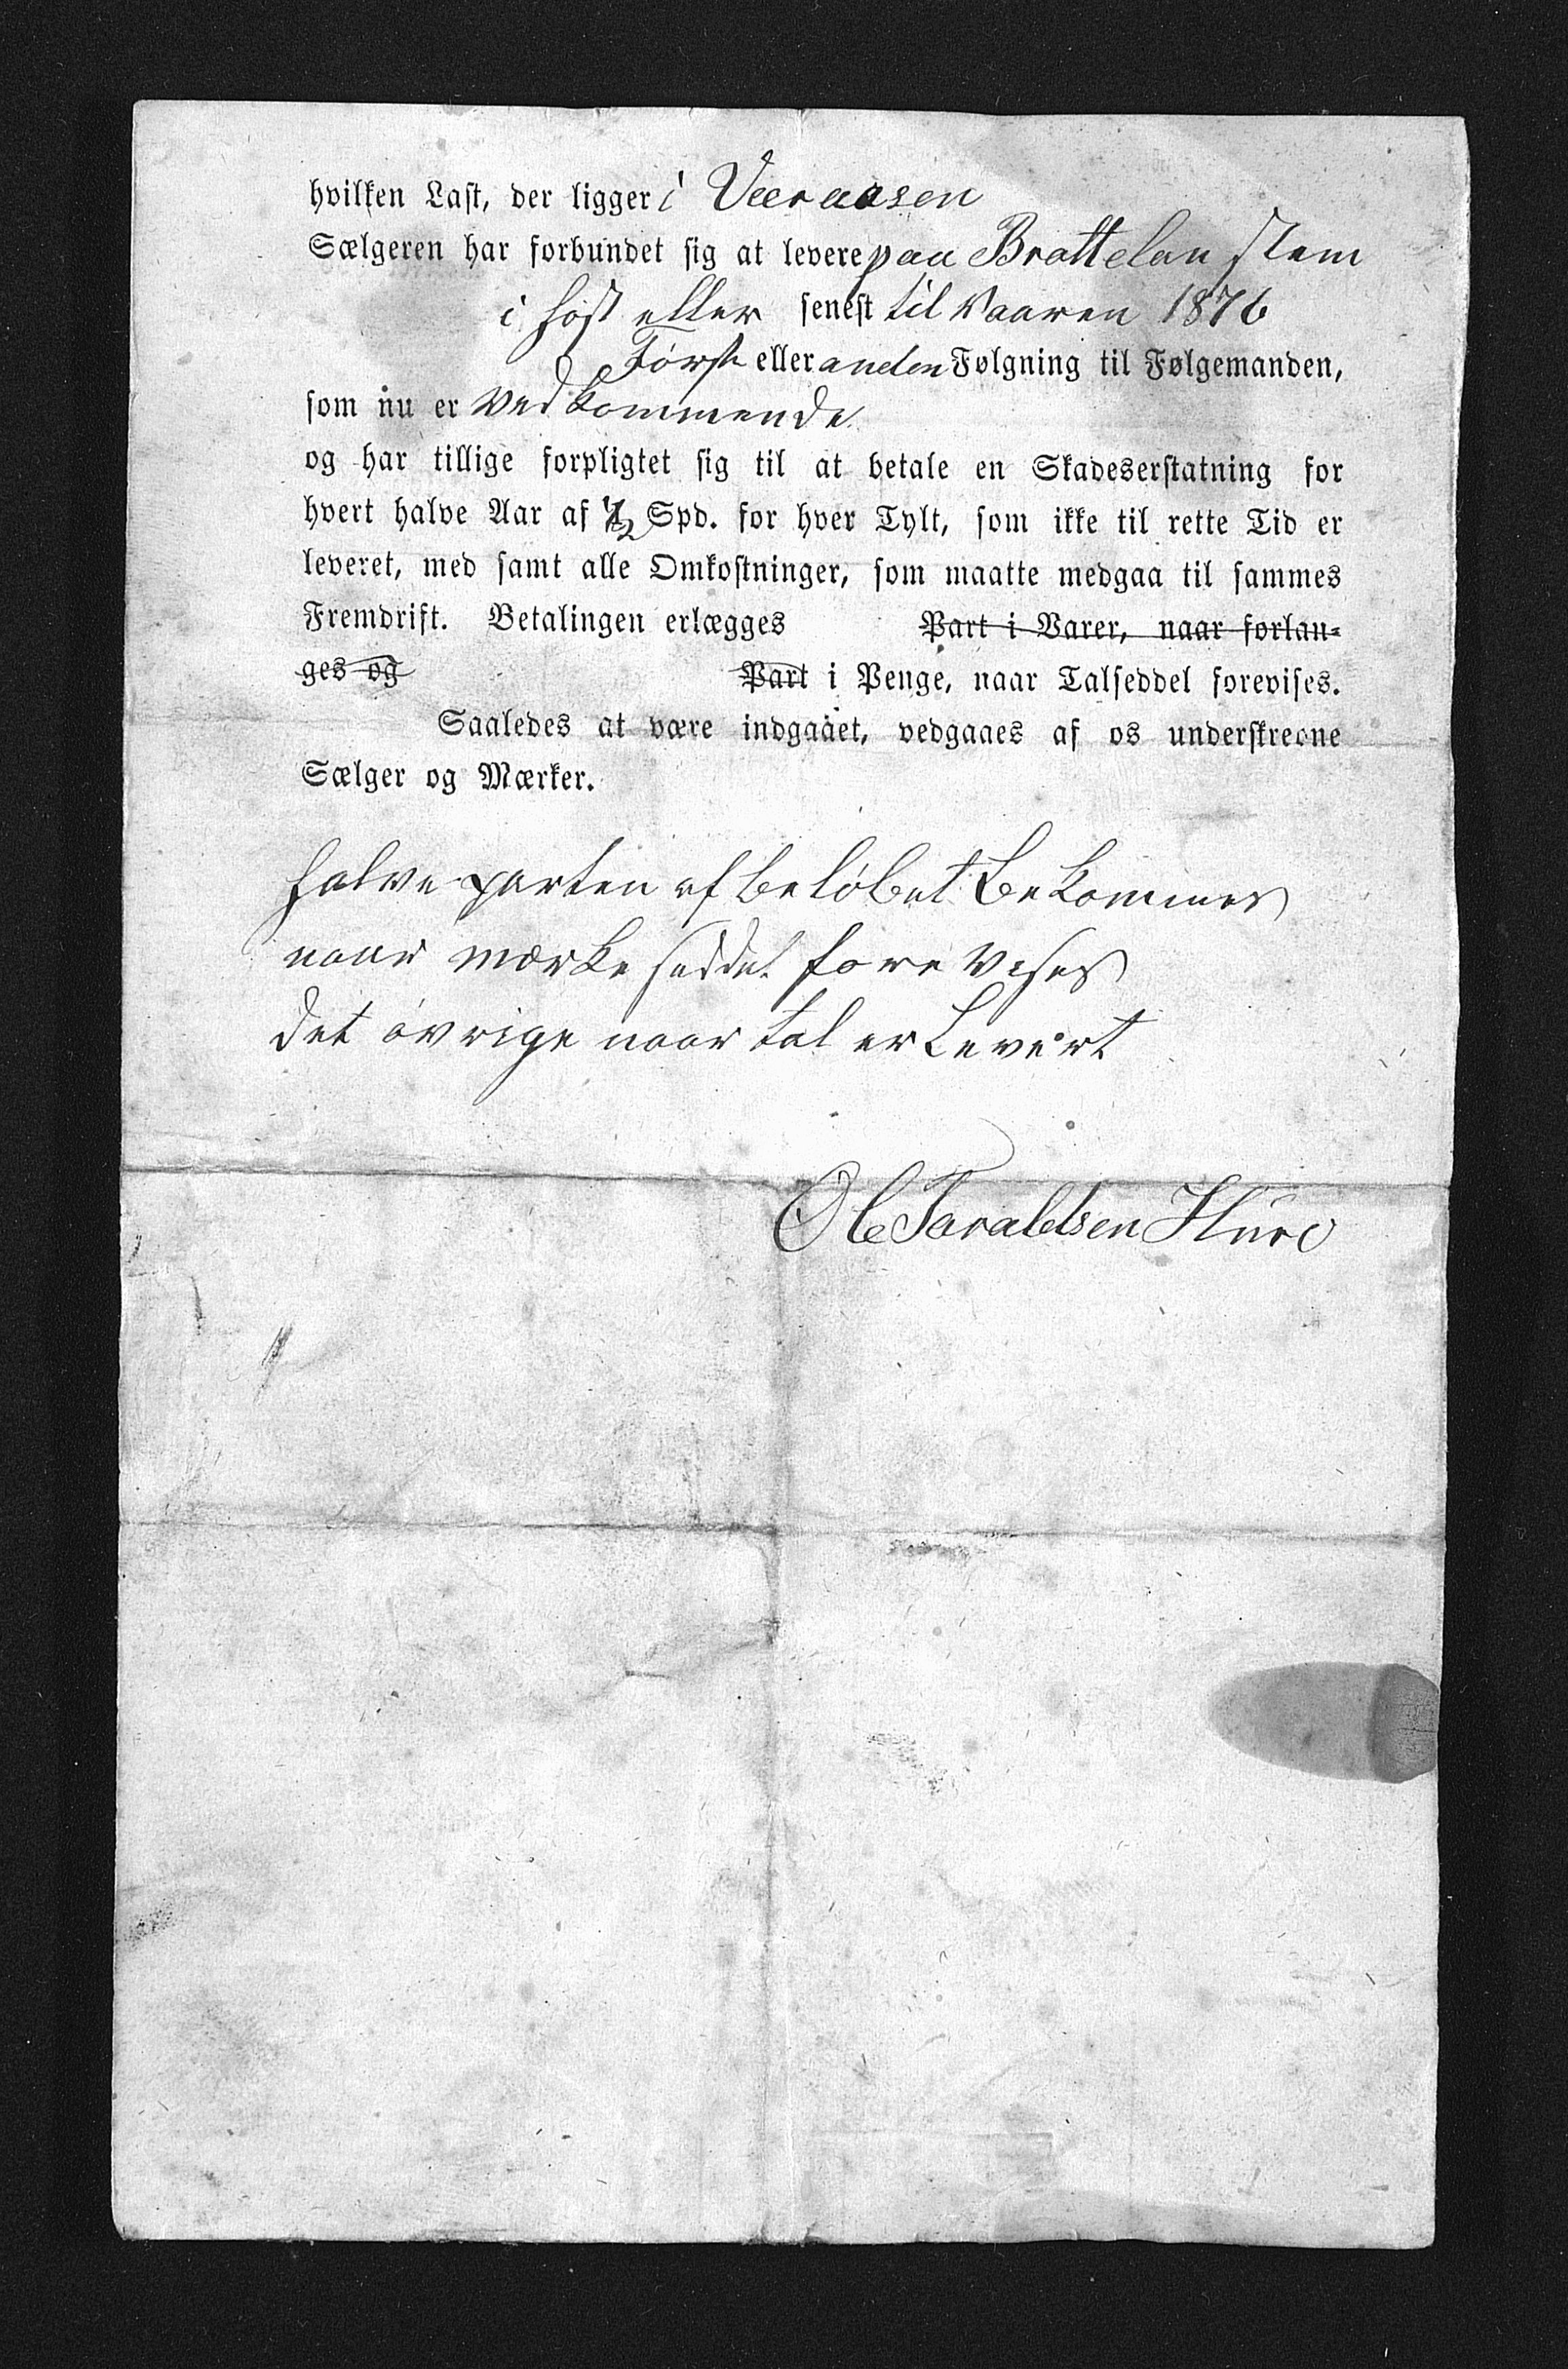 hvilken Last, der ligger i Veeraasen
Sælgeren har forbundet sig at levere paa Brattelan stem
i høst eller senest til Vaaren 1876
Første eller anden Følgning til Følgemanden,
som nu er Vedkommende
og har tillige forpligtet sig til at betale en Skadeserstatning for
hvert halve Aar af 1/2 Spd. for hver Tylt, som ikke til rette Tid er
leveret, med samt alle Omkostninger, som maatte medgaa til sammes
Fremdrift. Betalingen erlægges Part i Varer, naar forlan-
ges og Part i Penge, naar Talseddel forevises.
Saaledes at være indgaaet, vedgaaes af os underskrevne
Sælger og Mærker.
halve parten af beløbet bekommes
naar mærke seddel fore vises
det øvrige naar tal er Levert
Ole Taraldsen Huro